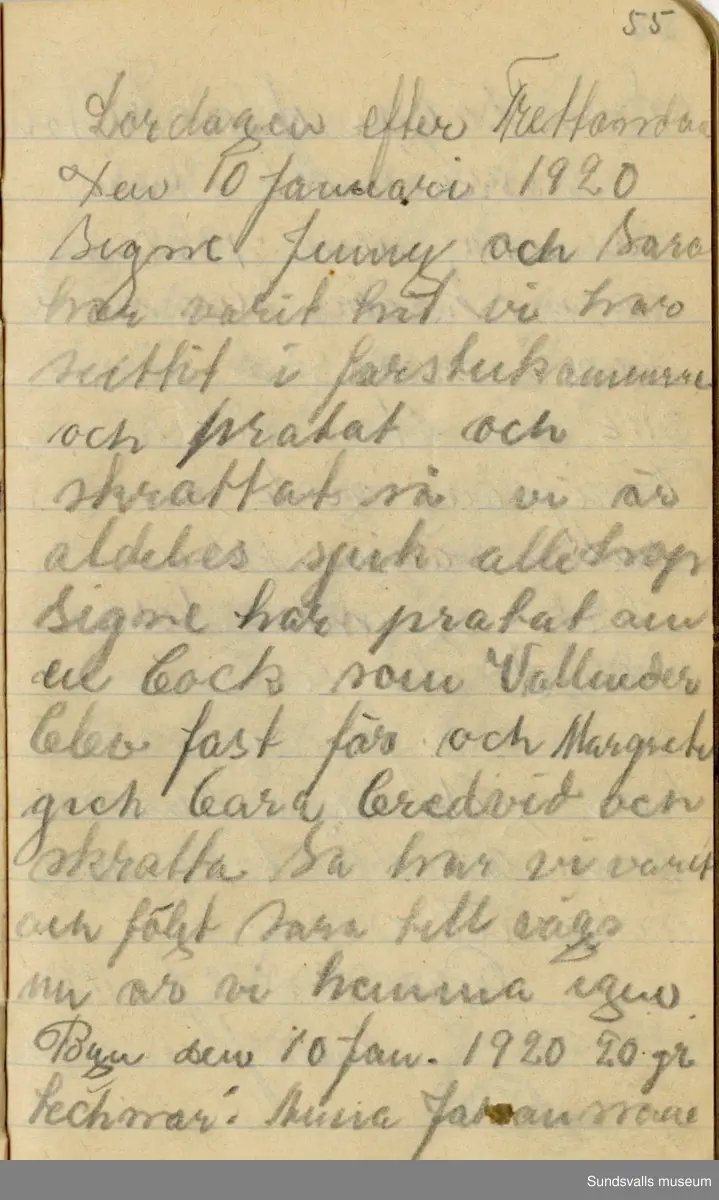 55
Lördagen efter Trettonda
Den 10 Januari 1920
Signe Jenny och Sara
har varit hit vi har
suttit i farstukammarre
och pratat och
skrattat så vi är
aldeles sjuk allihop
Signe har pratat om
en Cock som Vallinder
blev fast för och Margreta
gick bara bredvid och
skratta Så har vi varit
och följt Sara till vägs
nu är vi hemma igen
Byn den 10 Jan. 1920 20 gr
Anna Johansson
Sundsvalls museum